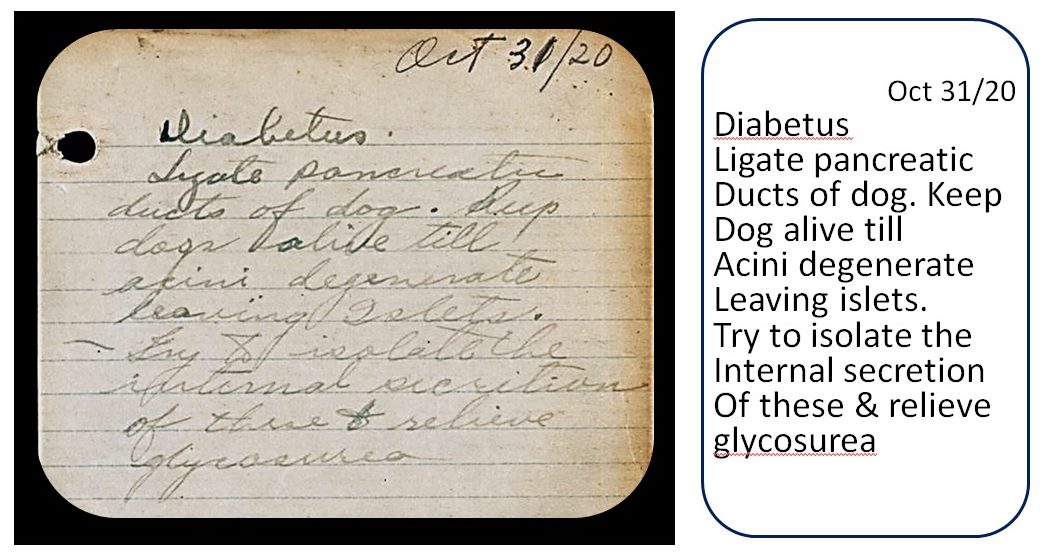 Oct 31/20
Diabetus.
Ligate pancreatic
ducts of dog. Keep
dogs alive till
acini degenerate
leaving Islets.
Try to isolate the
internal secretion
of these & relieve
glycosurea
Oct 31/20
Diabetus
Ligate pancreatic
Ducts of dog. Keep
Dog alive till
Acini degenerate
Leaving islets.
Try to isolate the
Internal secretion
Of these & relieve
glycosurea